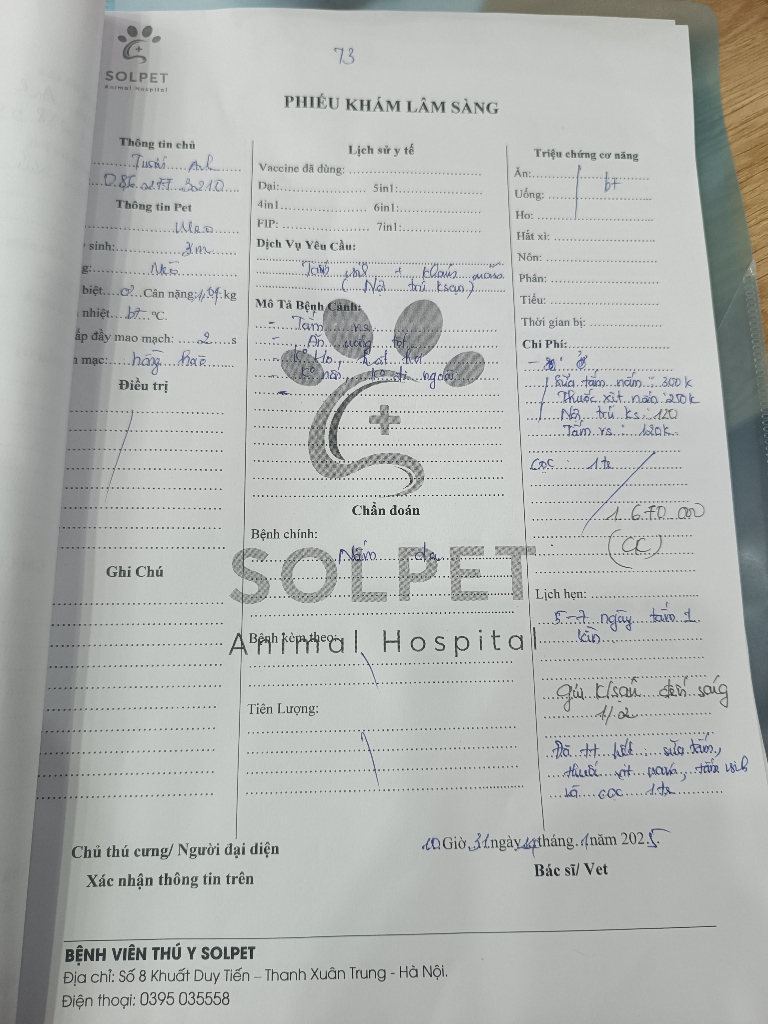 SOLPET
Animal Hospital
73
PHIẾU KHÁM LÂM SÀNG
Thông tin chủ
Thông tin Pet
Mèo
sinh:
g:
biệt: Cân nặng: kg
nhiệt: bt °C.
ấp đầy mao mạch: 2 s
mạc: hồng hào
Điều trị
Ghi Chú
Lịch sử y tế
Vaccine đã dùng:
Dại: 5in1:
4in1 6in1:
FIP: 7in1:
Dịch Vụ Yêu Cầu:
Tắm + khám
(Nội trú ksạn)
Mô Tả Bệnh Cảnh:
- Tắm vs
- Ăn uống tốt
- ko ho, hắt hơi
- ko nôn, ko đi ngoài
-
Chẩn đoán
Bệnh chính:
Nấm da
SOLPET
Animal Hospital
Bệnh kèm theo:
Tiên Lượng:
Triệu chứng cơ năng
Ăn:
bt
Uống:
Ho:
Hắt xì:
Nôn:
Phân:
Tiểu:
Thời gian bị:
Chi Phí:
Sữa tắm nấm: 300k
Thuốc xịt nấm: 250k
Nội trú ks: 120
Tắm vs: 120k
Cọc: 1tr
1.670.000
(CC)
Lịch hẹn:
5-7 ngày tắm 1
lần
gửi k/sạn đến sáng
1/2
Đã tt hết: sữa tắm,
thuốc xịt, tắm
và cọc 1tr
Chủ thú cưng/ Người đại diện
Xác nhận thông tin trên
10 Giờ 31 ngày tháng 1 năm 2025
Bác sĩ/ Vet
BỆNH VIÊN THÚ Y SOLPET
Địa chỉ: Số 8 Khuất Duy Tiến – Thanh Xuân Trung - Hà Nội.
Điện thoại: 0395 035558